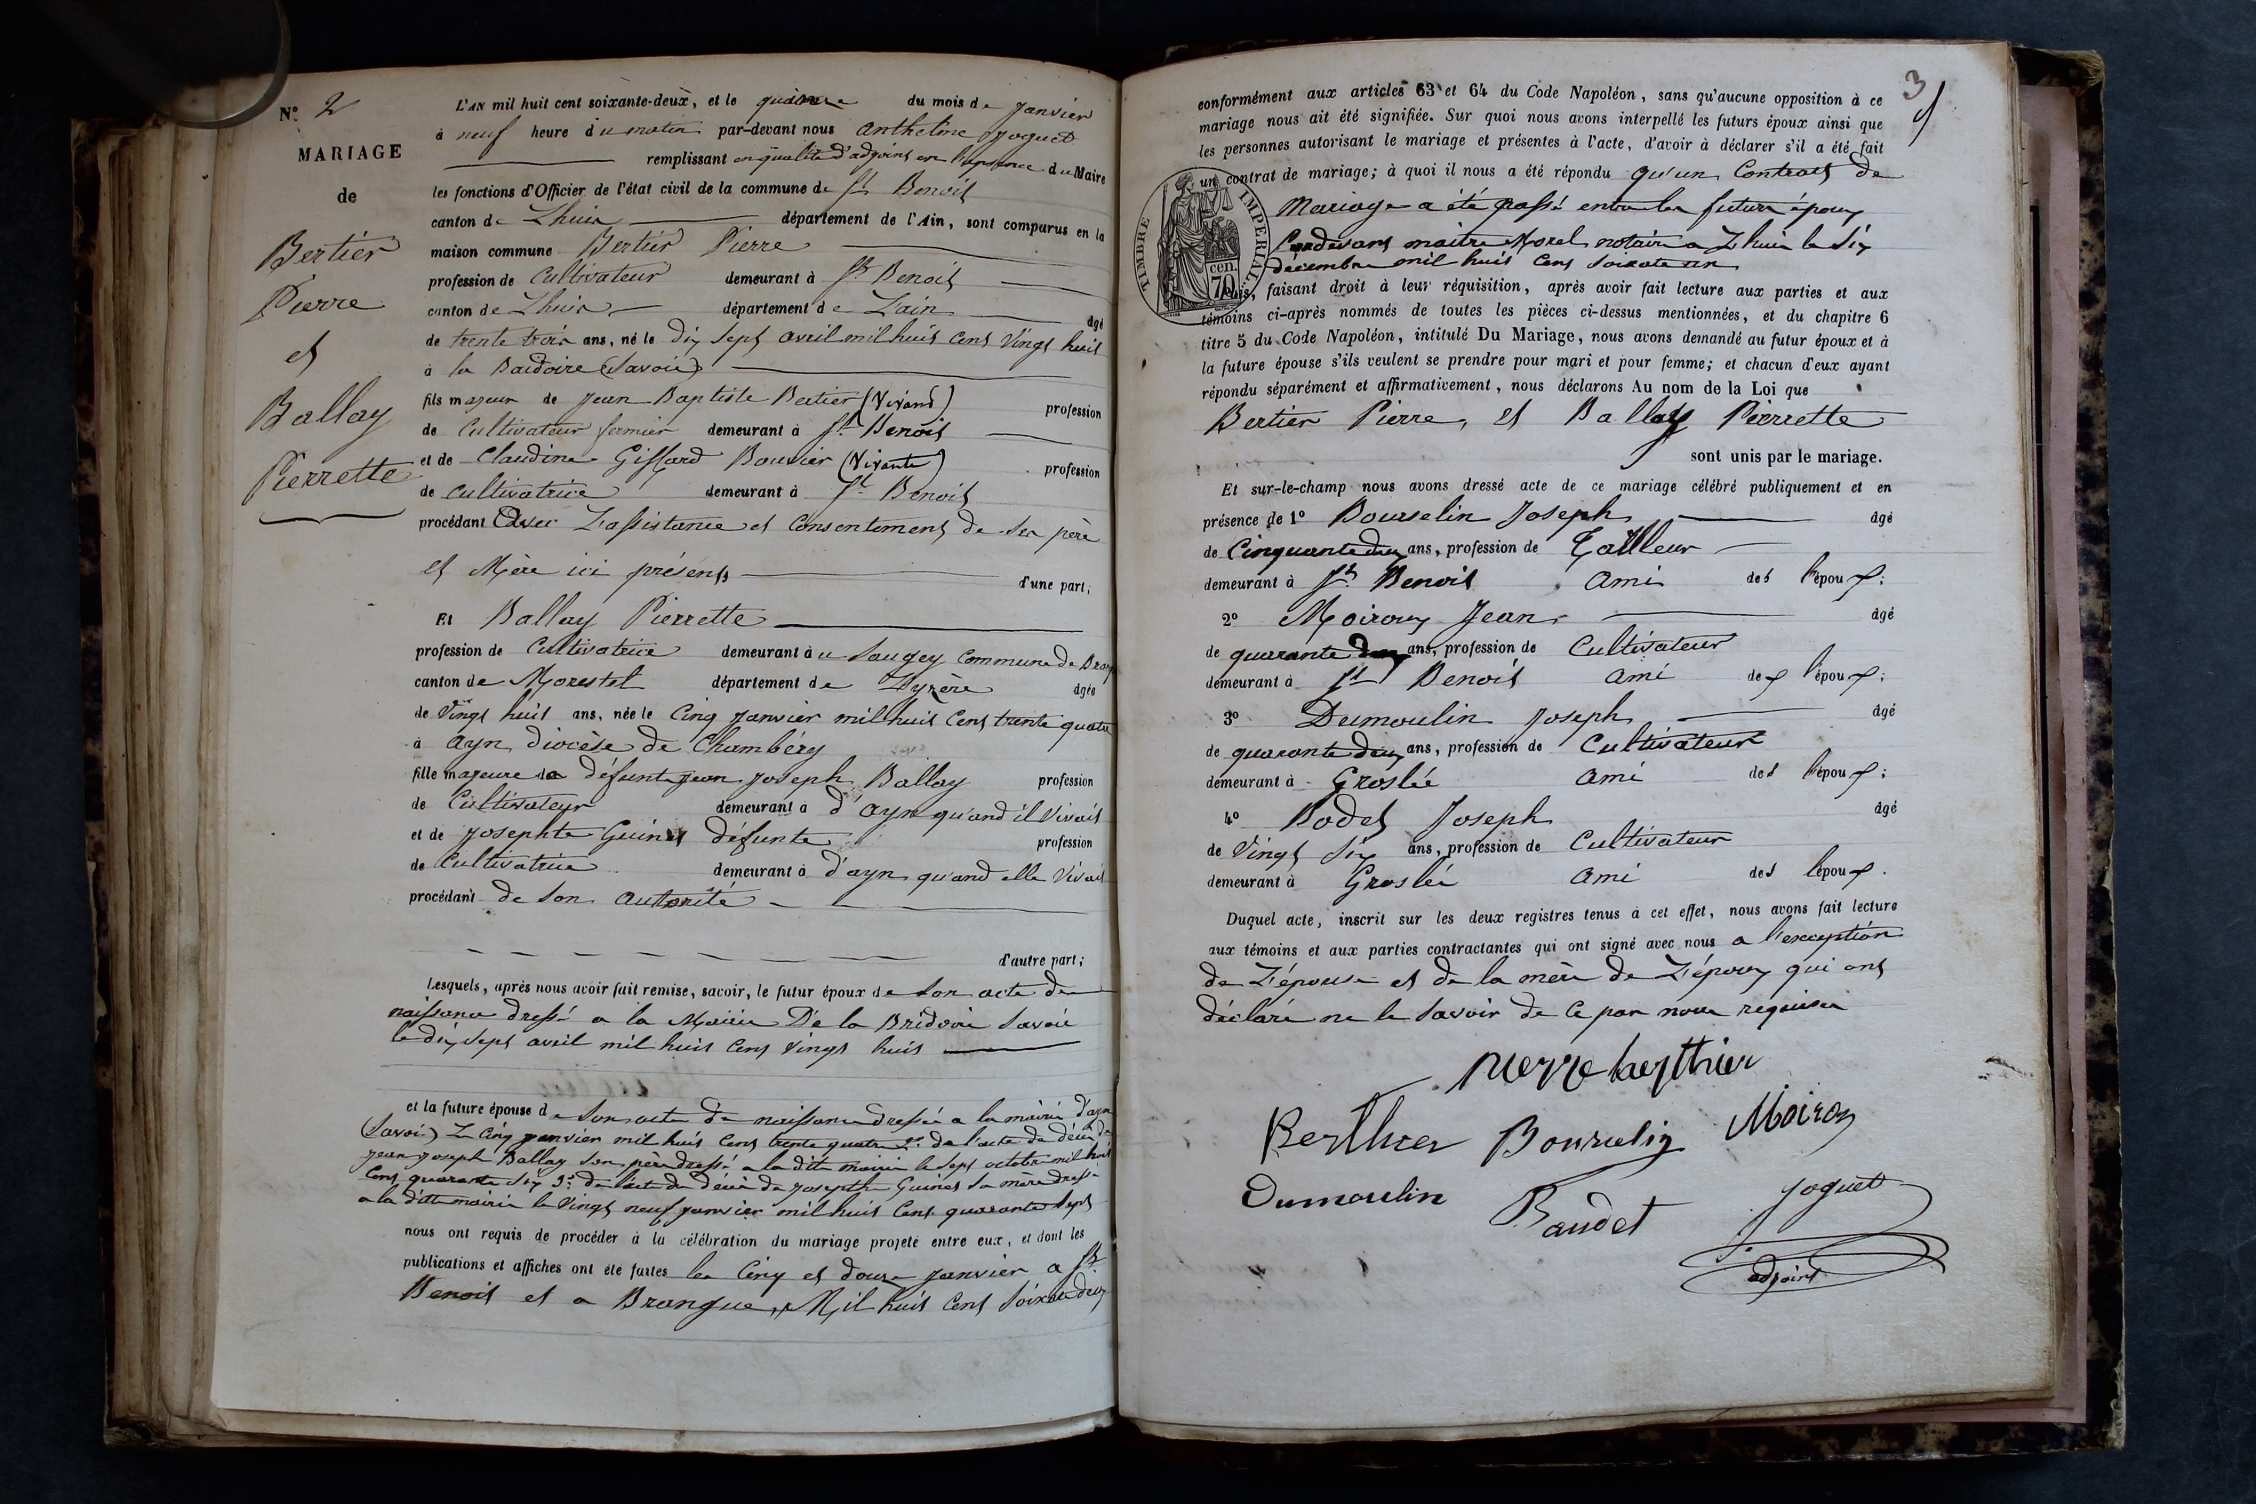 N.° 2
MARIAGE
de
Bertier
Pierre
et
Ballay
Pierrette
L'AN mil huit cent soixante-deux, et le quinze du mois de janvier
à neuf heure du matin par-devant nous Anthelme joguet
remplissant en qualité d'adjoint en l'apsence du Maire
les fonctions d'Officier de l'état civil de la commune de St Benoit
canton de Lhuis département de l'Ain, sont comparus en la
maison commune Bertier Pierre
profession de Cultivateur demeurant à St Benoit
canton de Lhuis département de Lain âgé
de trente trois ans, né le dix sept avril mil huit cent vingt huit
à la Baidoire (Savoie)
fils majeur de jean Baptiste Bertier (Vivant) profession
de Cultivateur fermier demeurant à St Benoit
et de Claudine Giffard Bouvier (Vivante) profession
de cultivatrice demeurant à St Benoit
procédant Avec L'assistance et Consentement de ses père
et Mère ici présents d'une part;
Et Ballay Pierrette
profession de Cultivatrice demeurant à u Saugey Commune de Bran
canton de Morestel département de Lysère âgée
de Vingt huit ans, née le Cinq janvier mil huit Cent trente quatre
à Ayn diocèse de Chambéry
fille majeure de défunt jean joseph Ballay profession
de Cultivateur demeurant à d'ayn quand il Vivait
et de josephte Guinet défunte profession
de Cultivatrice demeurant à d'ayn quand elle Vivait
procédant de son autorité
d'autre part;
Lesquels, après nous avoir fait remise, savoir, le futur époux de son acte de
naissance dressé a la Mairie De la Bridoire Savoie
le dix sept avril mil huit Cent vingt huit
et la future épouse de son acte de naissance dressée a la mairie d'ayn
(Savoie) Le Cinq janvier mil huit Cent trente quatre 2° de l'acte de décès de
jean joseph Ballay son père dressé a la dite mairie le sept octobre mil huit
Cent quarante six 3° de l'acte de décès de josephte Guinet sa mère dressé
a la ditte mairie le Vingt neuf janvier mil huit Cent quarante sept
nous ont requis de procéder à la célébration du mariage projeté entre eux, et dont les
publications et affiches ont été faites les Cinq et douze janvier a St
Benoit et a Brangues, Mil huit Cent soixante deux
3
conformément aux articles 63 et 64 du Code Napoléon, sans qu'aucune opposition à ce
mariage nous ait été signifiée. Sur quoi nous avons interpellé les futurs époux ainsi que
les personnes autorisant le mariage et présentes à l'acte, d'avoir à déclarer s'il a été fait
un contrat de mariage; à quoi il nous a été répondu qu'un Contract de
Mariage a été passé entre les futurs époux
Pardevant maitre Morel notaire a Lhuis le Six
décembre mil huit Cent soixante un
TIMBRE IMPÉRIAL
70 cen.
Puis, faisant droit à leur réquisition, après avoir fait lecture aux parties et aux
témoins ci-après nommés de toutes les pièces ci-dessus mentionnées, et du chapitre 6
titre 5 du Code Napoléon, intitulé Du Mariage, nous avons demandé au futur époux et à
la future épouse s'ils veulent se prendre pour mari et pour femme; et chacun d'eux ayant
répondu séparément et affirmativement, nous déclarons Au nom de la Loi que
Bertier Pierre, et Ballay Pierrette
sont unis par le mariage.
Et sur-le-champ nous avons dressé acte de ce mariage célébré publiquement et en
présence de 1° Bourselin Joseph âgé
de Cinquante deux ans, profession de Tailleur
demeurant à St Benoit Ami des l'époux;
2° Moiroux Jean âgé
de quarante deux ans, profession de Cultivateur
demeurant à St Benoit Ami de l'époux;
3° Dumoulin Joseph âgé
de quarante deux ans, profession de Cultivateur
demeurant à Groslée Ami des l'époux;
4° Bodet Joseph âgé
de Vingt Six ans, profession de Cultivateur
demeurant à Groslée Ami des l'époux.
Duquel acte, inscrit sur les deux registres tenus à cet effet, nous avons fait lecture
aux témoins et aux parties contractantes qui ont signé avec nous a l'exception
de L'épouse et de la mère de L'époux qui ont
déclaré ne le savoir de Ce par nous requises
pierre berthier
Berthier Bourselin Moiroux
Dumoulin Baudet Joguet
adjoint